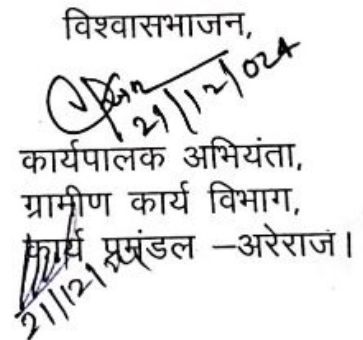 विश्वासभाजन,
21/12/024
कार्यपालक अभियंता,
ग्रामीण कार्य विभाग,
कार्य प्रमंडल –अरेराज।
21/12/